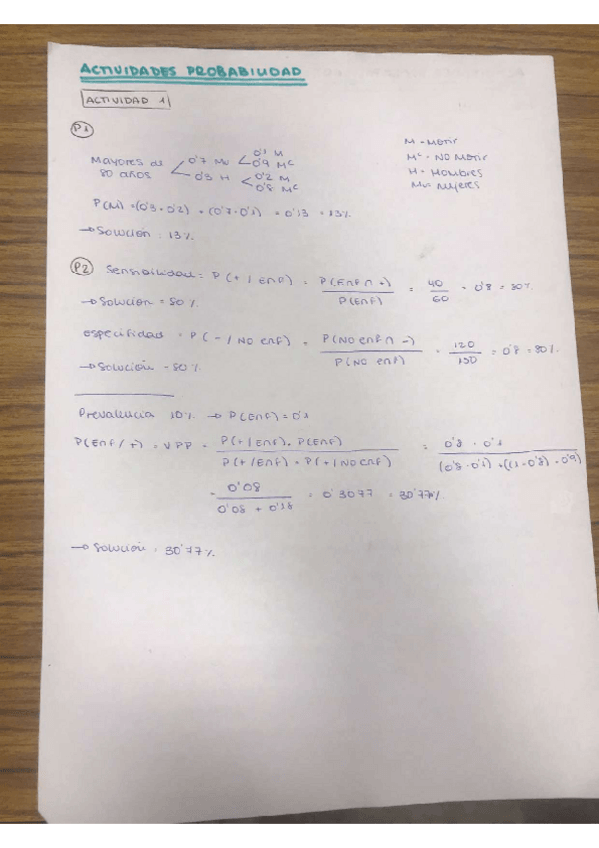 ACTIVIDADES PROBABILIDAD
ACTIVIDAD 1
P1
M = MORIR
Mc = NO MORIR
H = HOMBRES
Mu = MUJERES
Mayores de 80 años
0'7 Mu
0'1 M
0'9 Mc
0'3 H
0'2 M
0'8 Mc
P(M) = (0'3 · 0'2) + (0'7 · 0'1) = 0'13 = 13%
→ Solución: 13%
P2 Sensibilidad = P(+ / ENF) = P(ENF ∩ +) / P(ENF) = 40 / 60 = 0'8 = 80%
→ Solución = 80%
especifidad = P(- / NO ENF) = P(NO ENF ∩ -) / P(NO ENF) = 120 / 150 = 0'8 = 80%
→ Solución = 80%
Prevalencia 10% → P(ENF) = 0'1
P(ENF/+) = VPP = P(+/ENF) · P(ENF) / P(+/ENF) + P(+/NO ENF) = 0'8 · 0'1 / (0'8 · 0'1) + ((1 - 0'8) · 0'9)
= 0'08 / 0'08 + 0'18 = 0'3077 = 30'77%
→ Solución = 30'77%